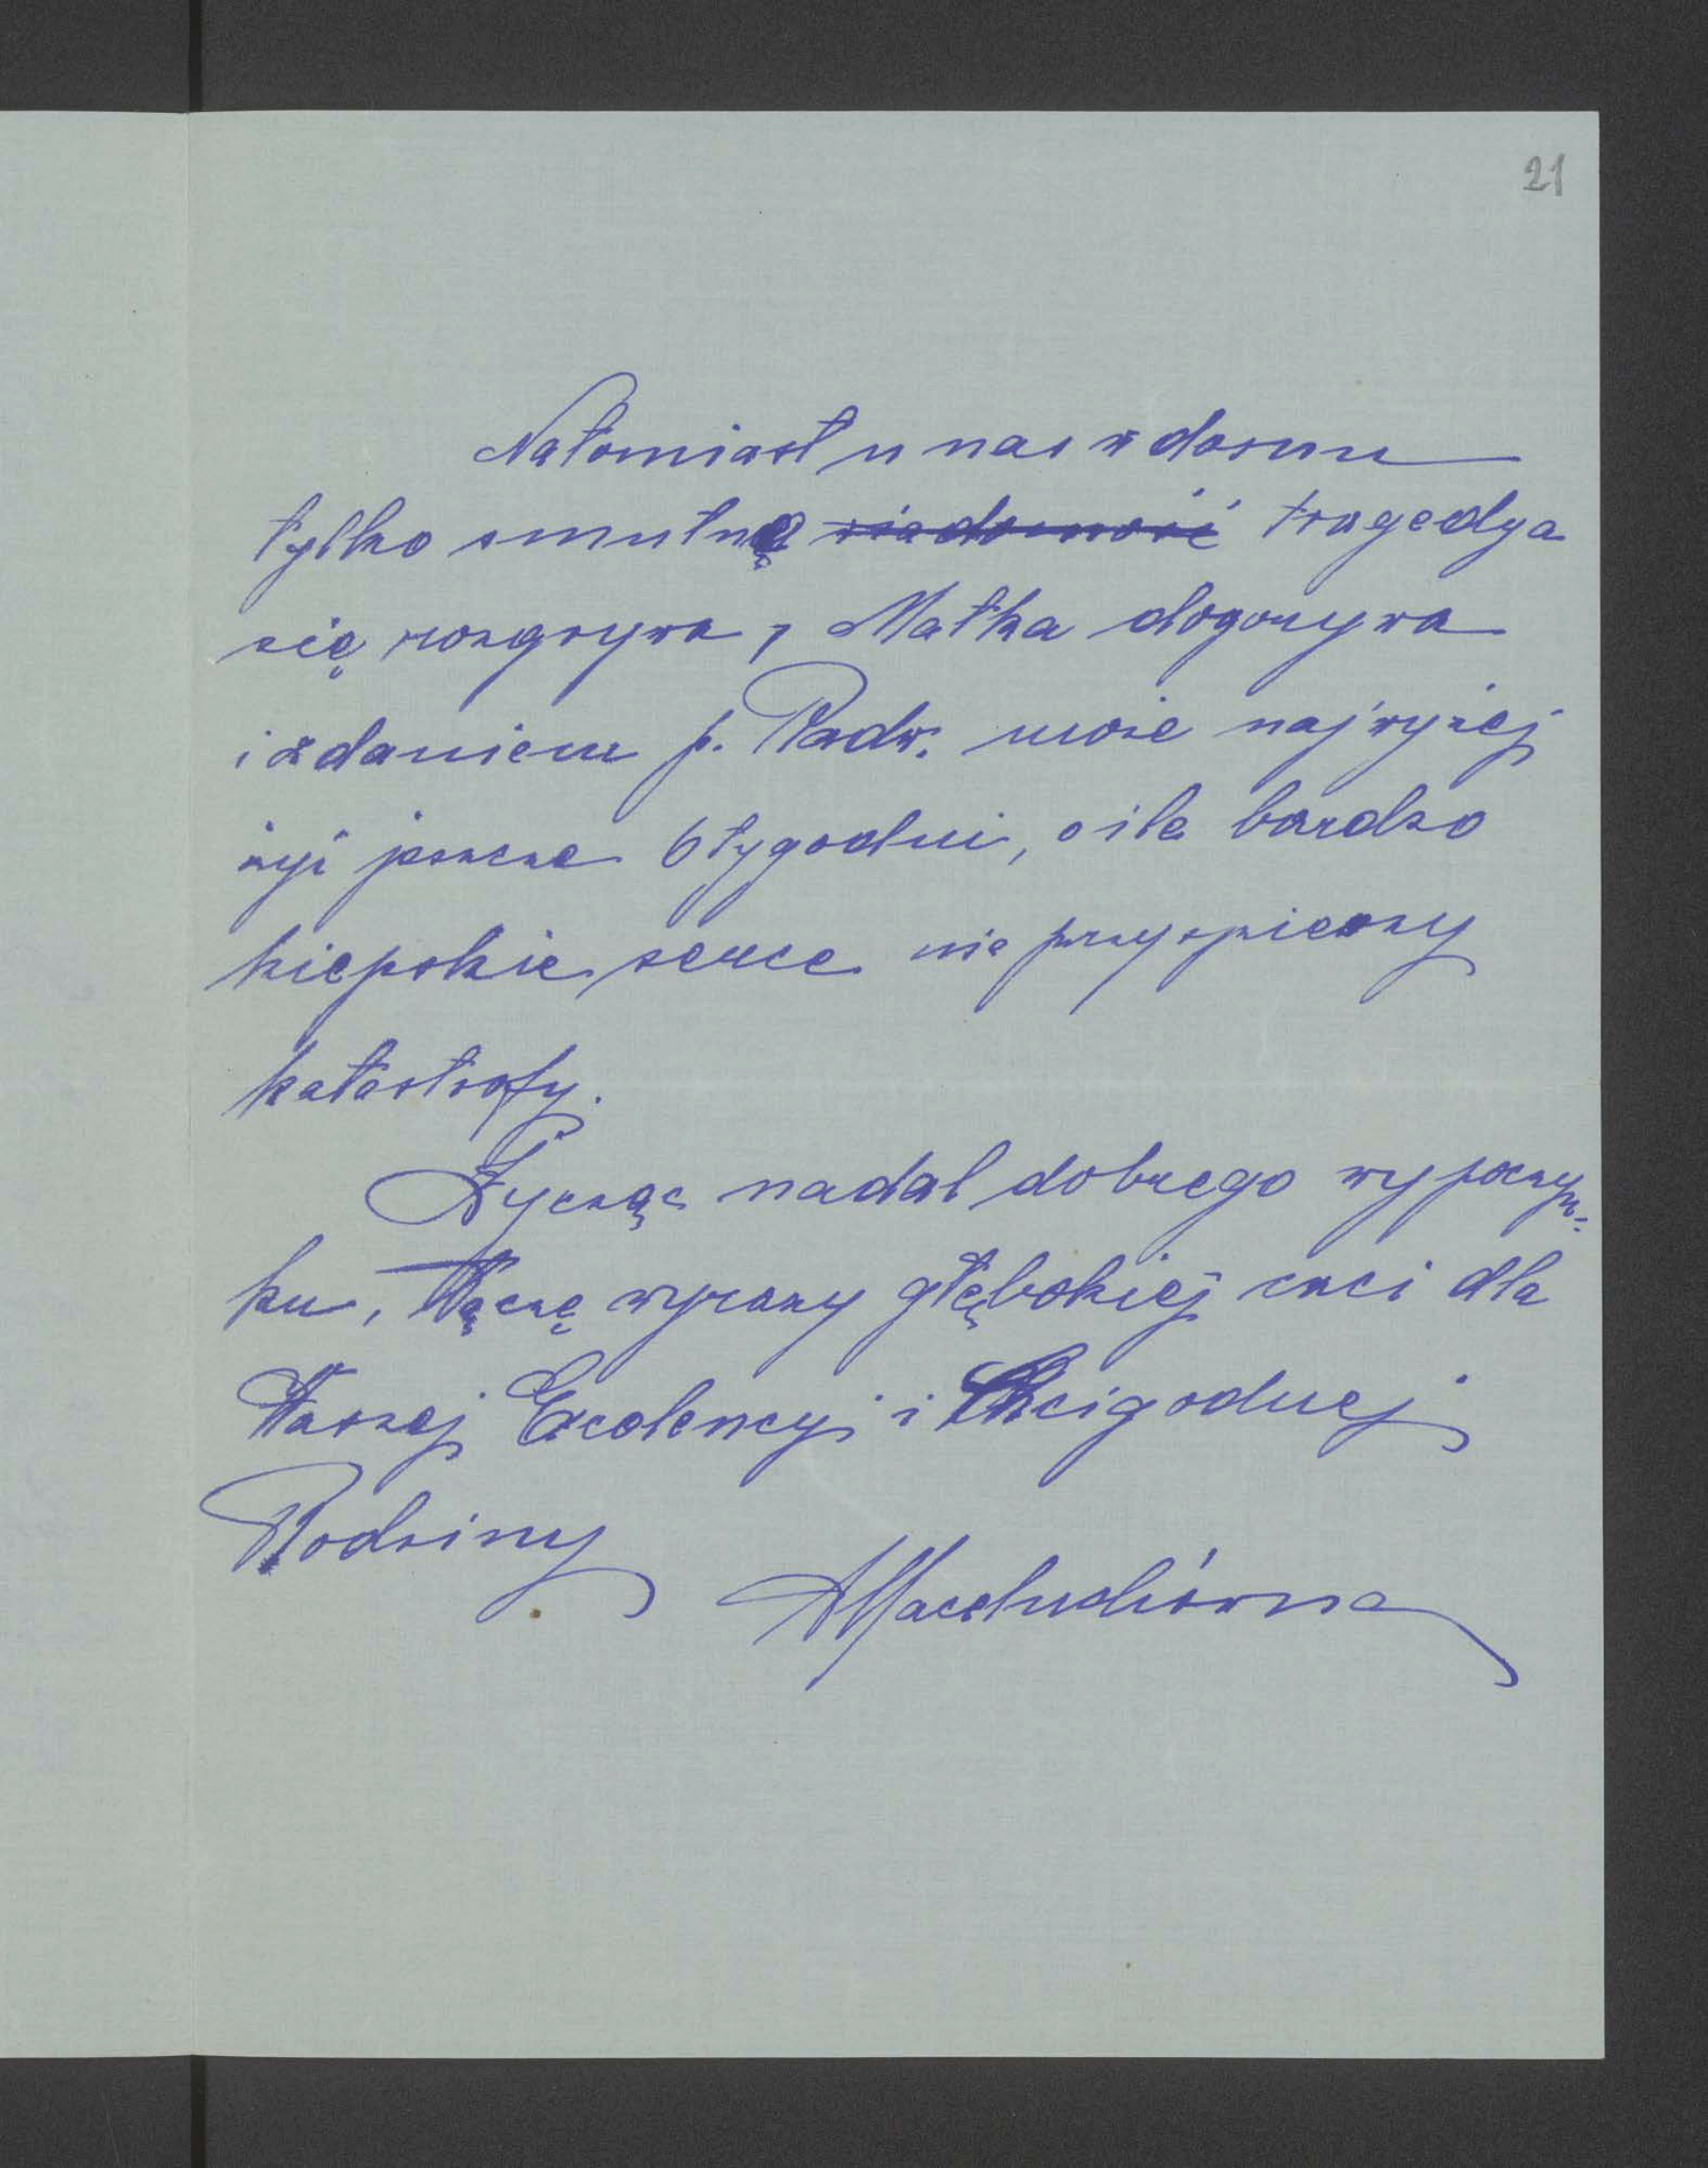 21
Natomiast u nas w domu
tylko smutna wiadomość tragedya
się rozgrywa, Matka dogorywa
i zdaniem p. Radw. może najwyżej
żyć jeszcze 6 tygodni, o ile bardzo
kiepskie serce nie przyspieszy
katastrofy.
Życząc nadal dobrego wypoczyn=
ku, łączę wyrazy głębokiej czci dla
Waszej Excelencyi i Czcigodnej
Rodziny